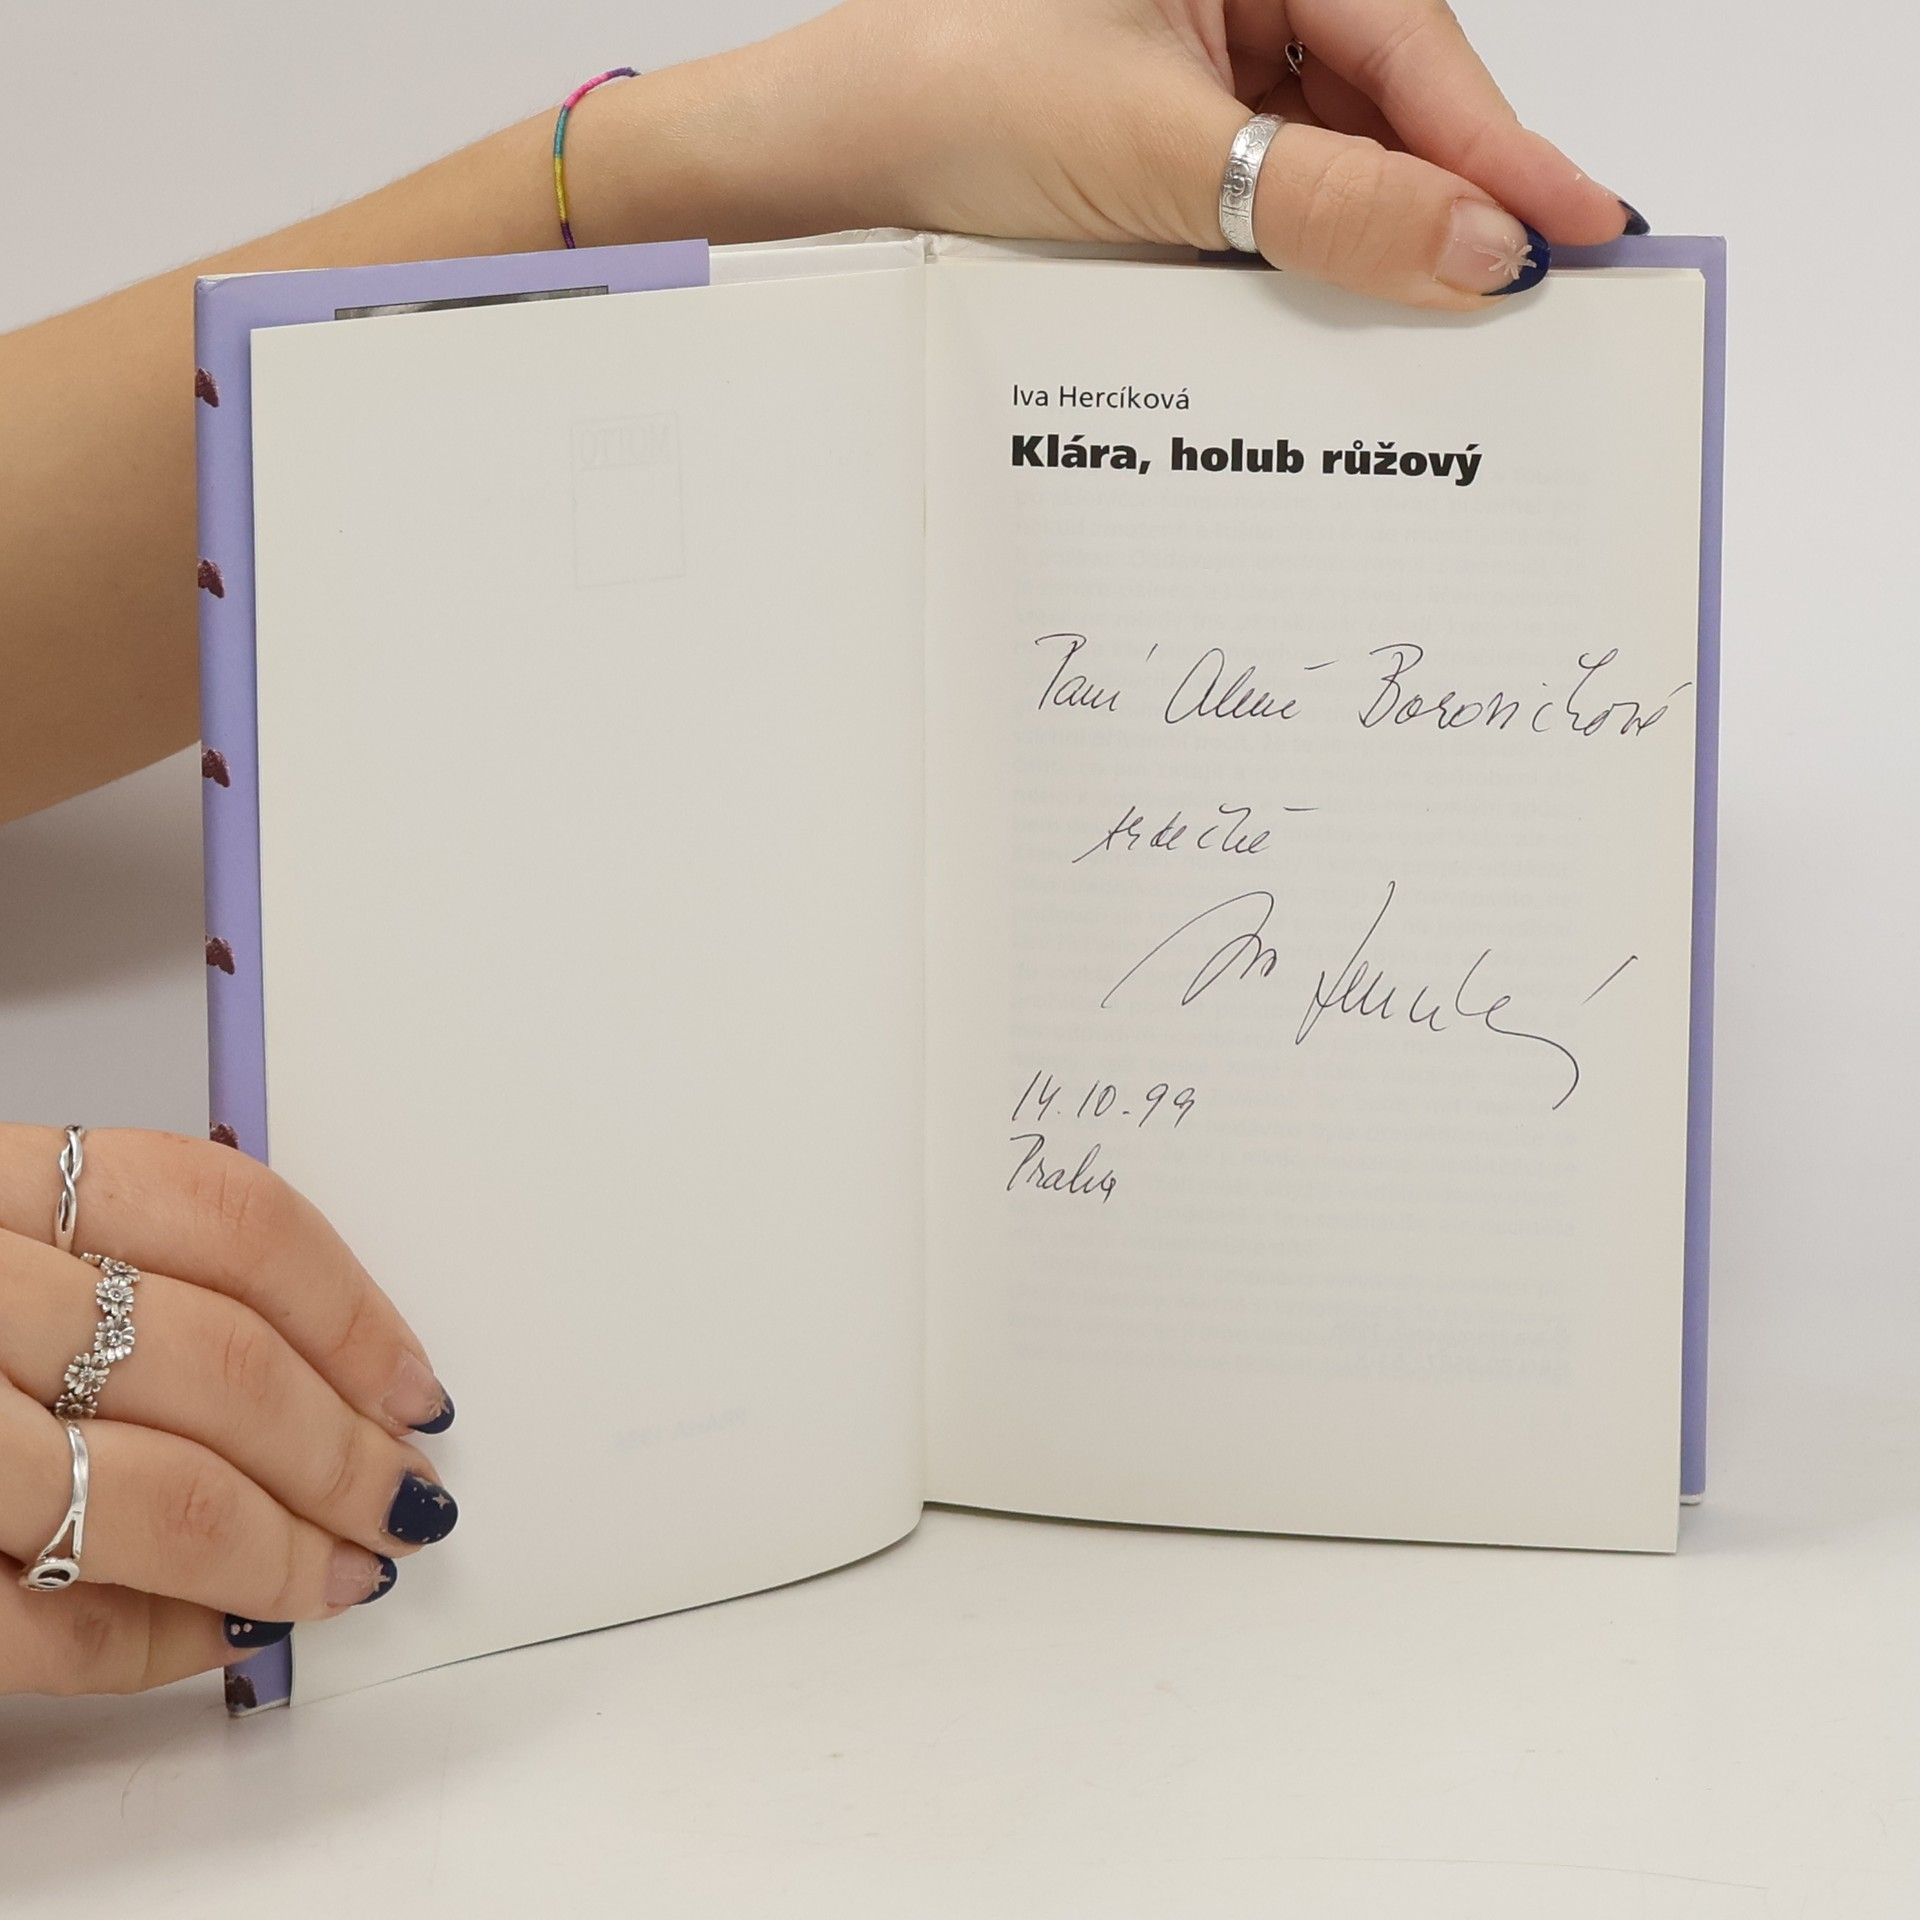 Iva Hercíková
Klára, holub růžový
Paní Aleně Borovičkové
srdečně
Iva Hercíková
14.10.99
Praha